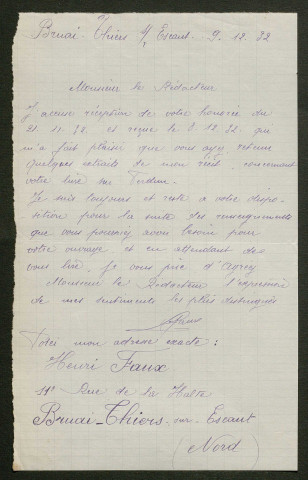 Bruai-Thiers s/ Escaut 9. 12. 32
Monsieur le Rédacteur
J'accuse réception de votre honorée du
21. 11. 32 et reçue le 3. 12. 32 qui
m'a fait plaisir que vous ayez retenu
quelques extraits de mon récit, concernant
votre livre sur Verdun.
Je suis toujours et reste à votre dispo-
sition pour la suite des renseignements
que vous pouvez avoir besoin pour
votre ouvrage et en attendant de
vous lire, je vous prie d'Agréez
Monsieur le Rédacteur l'expression
de mes sentiments les plus distingués
Faux
Voici mon adresse exacte :
Henri Faux
11 Rue de la Halte
Bruai-Thiers sur Escaut
(Nord)